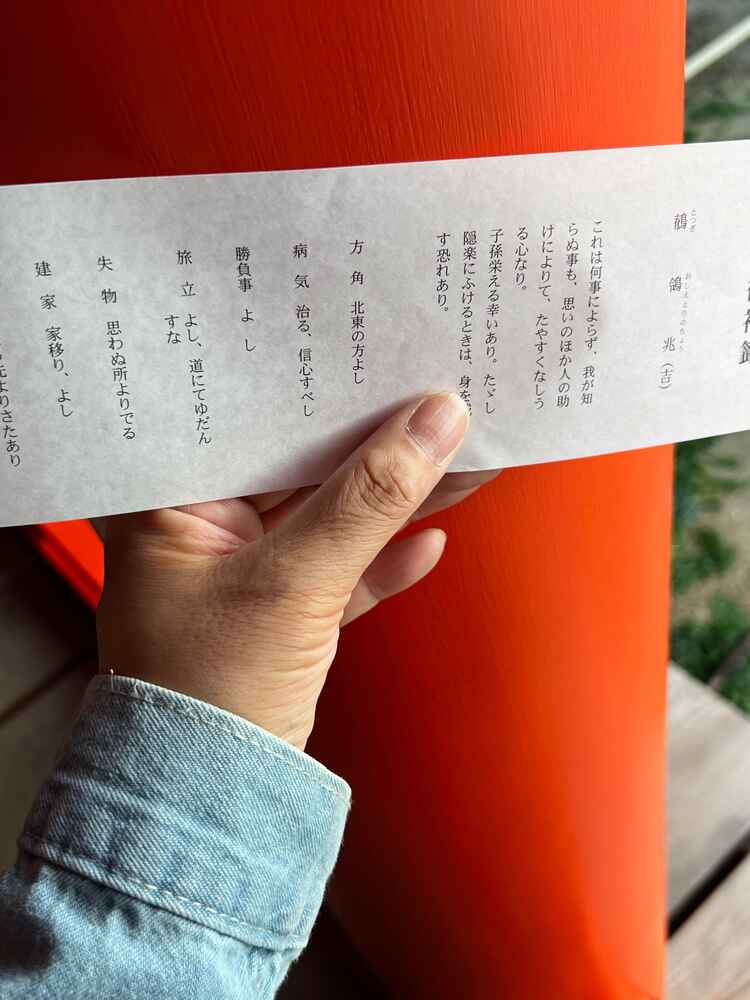 とつぎ おしえどりのちょう
鶺鴒兆（吉）
これは何事によらず、我が知
らぬ事も、思いのほか人の助
けによりて、たやすくなしう
る心なり。
子孫栄える幸いあり。たゞし
隠楽にふけるときは、身を
す恐れあり。
方角 北東の方よし
病気 治る、信心すべし
勝負事 よし
旅立 よし、道にてゆだん
すな
失物 思わぬ所よりでる
建家 家移り、よし
よりさたあり